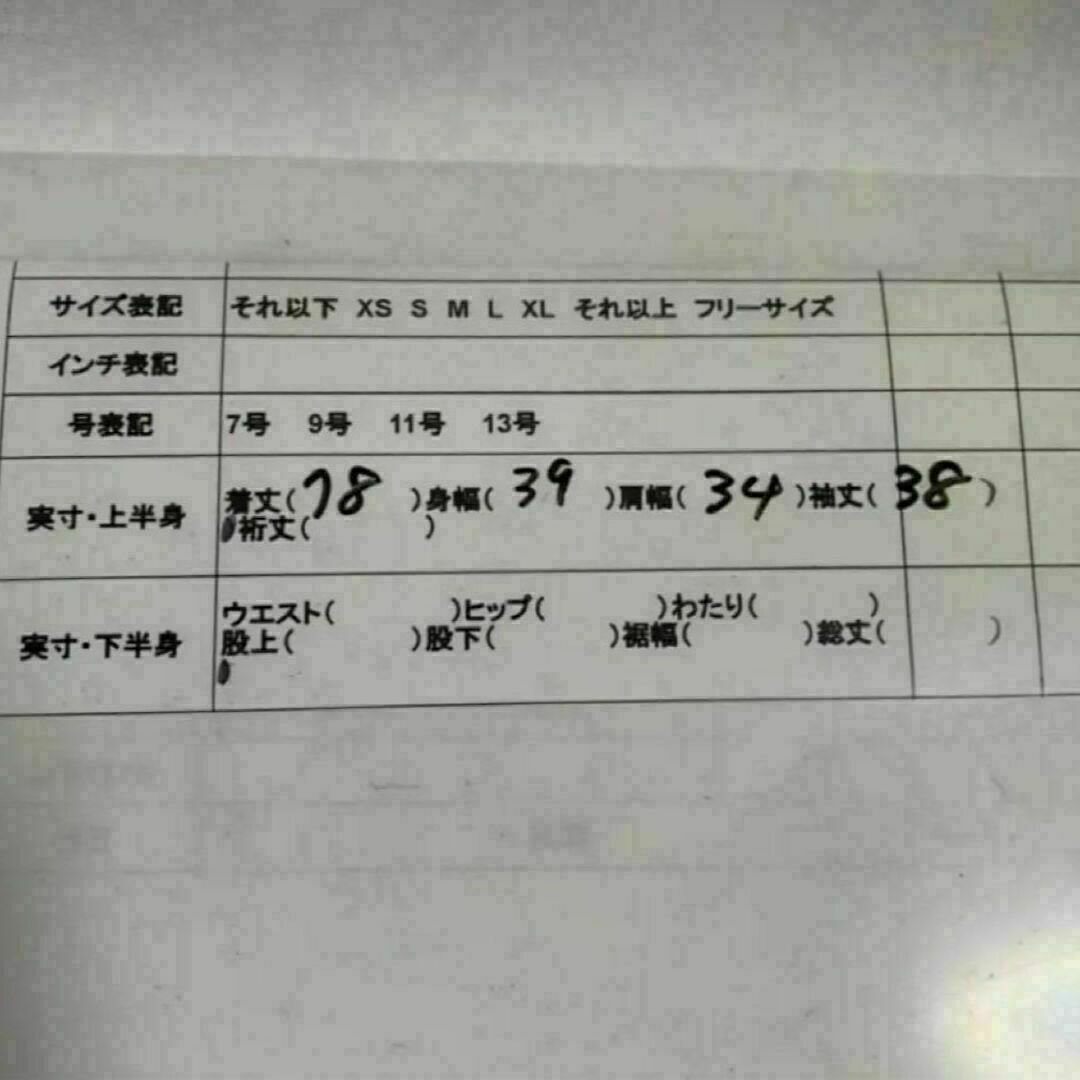 サイズ表記 それ以下 XS S M L XL それ以上 フリーサイズ
インチ表記
号表記 7号 9号 11号 13号
実寸・上半身 着丈( 78 )身幅( 39 )肩幅( 34 )袖丈( 38 )
裄丈( )
実寸・下半身 ウエスト( )ヒップ( )わたり( )
股上( )股下( )裾幅( )総丈( )